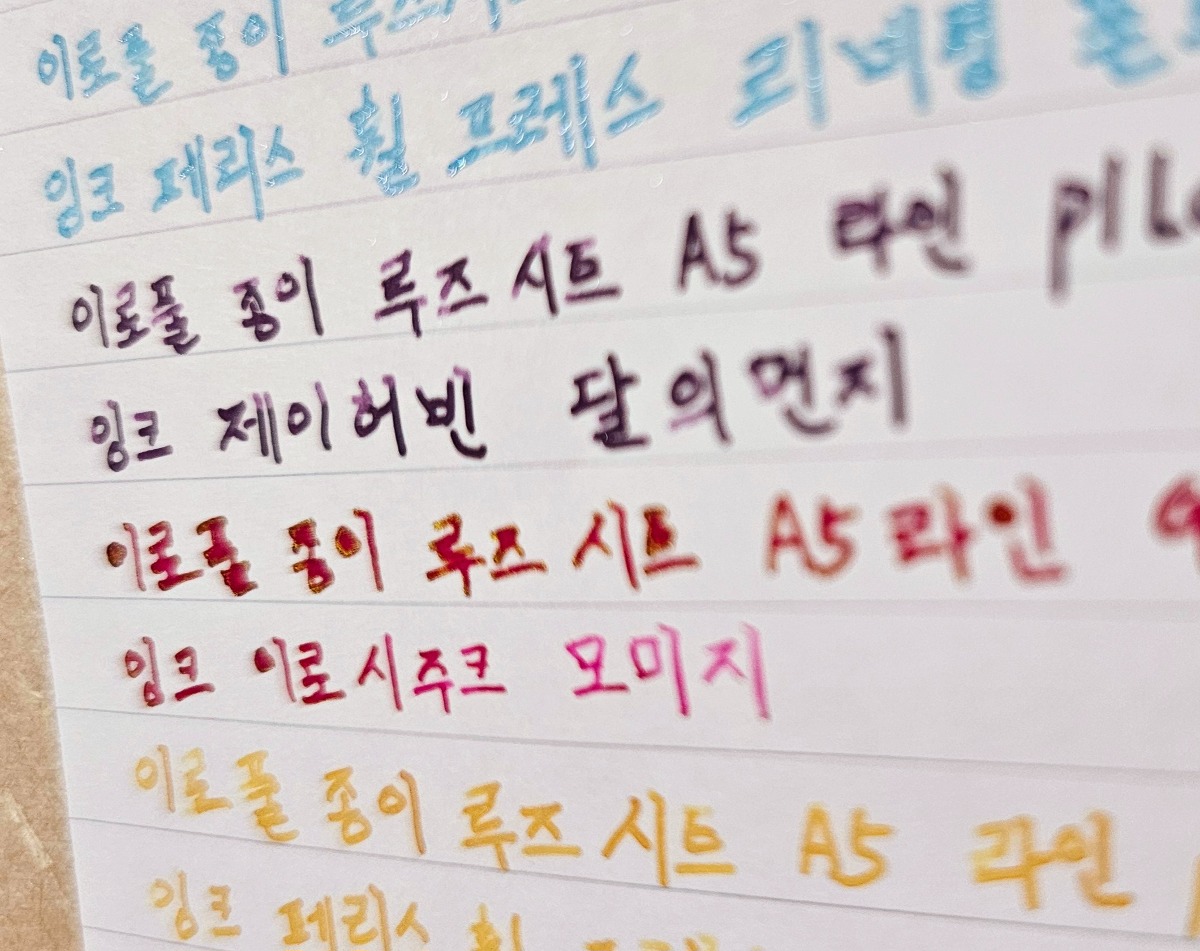 이로풀 종이 루즈시트
잉크 페리스 휠 프레스 리네링
이로풀 종이 루즈시트 A5 라인 pilo
잉크 제이허빈 달의먼지
이로풀 종이 루즈시트 A5 라인
잉크 이로시주쿠 모미지
이로풀 종이 루즈시트 A5 라인
잉크 페리스 휠 프레스